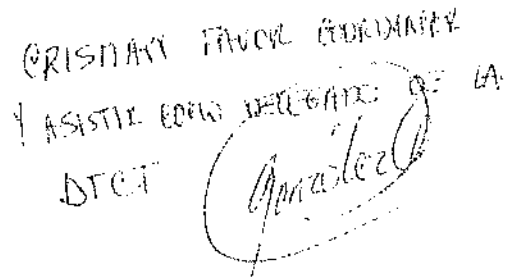 CRISMARY FAVOR COORDINAR
Y ASISTIR COMO DELEGADO DE LA
DTCT González